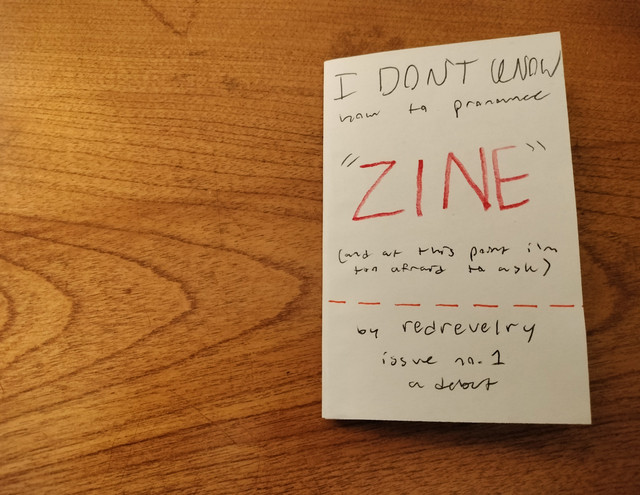 I DON'T KNOW
how to pronounce
"ZINE"
(and at this point i'm
too afraid to ask)
by redrevelry
issue no. 1
a debut